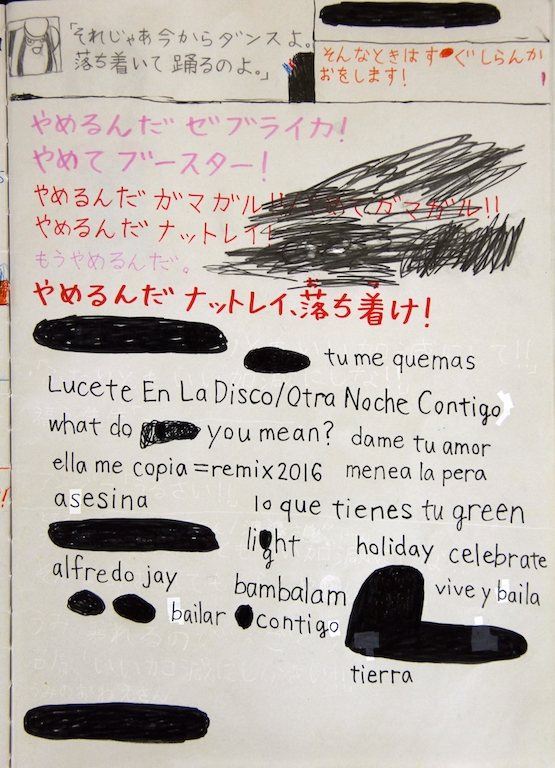 「それじゃあ今からダンスよ。
落ち着いて踊るのよ。」
そんなときはす ぐしらんか
おをします!
やめるんだ ゼブライカ!
やめて ブースター!
やめるんだ ガマガル!! ガマガル!!
やめるんだ ナットレイ!
もうやめるんだ。
やめるんだ ナットレイ、落ち着け!
お つ
tu me quemas
Lucete En La Disco/Otra Noche Contigo
what do you mean? dame tu amor
ella me copia=remix2016 menea la pera
asesina lo que tienes tu green
light holiday celebrate
alfredo jay bambalam vive y baila
bailar contigo
tierra